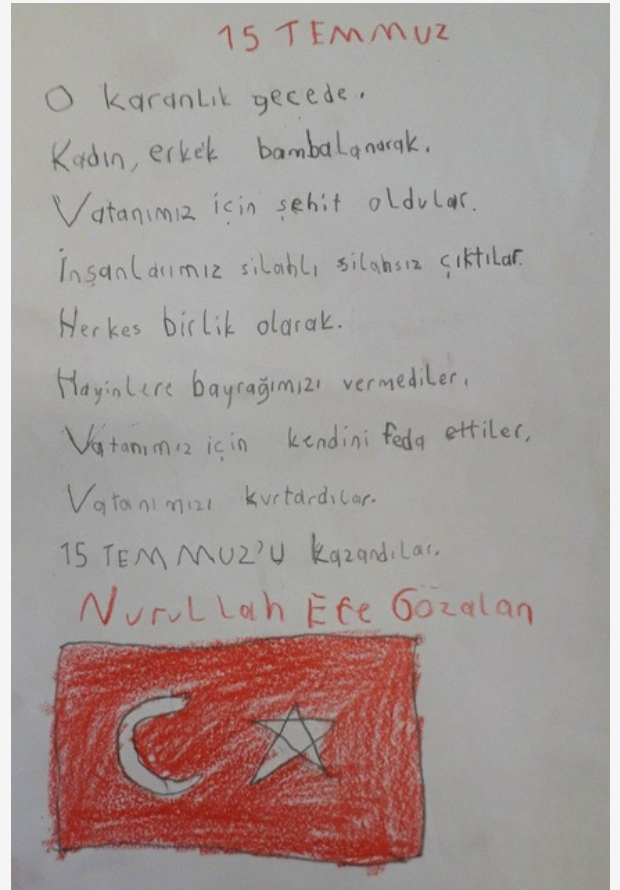 15 TEMMUZ
O karanlık gecede.
Kadın, erkek bambalanarak.
Vatanımız için şehit oldular.
İnşanlarımız silahlı silahsız çıktılar.
Herkes birlik olarak.
Hayinlere bayrağımızı vermediler.
Vatanımız için kendini feda ettiler,
Vatanımızı kurtardılar.
15 TEMMUZ'U kazandılar.
Nurullah Efe Gözalan